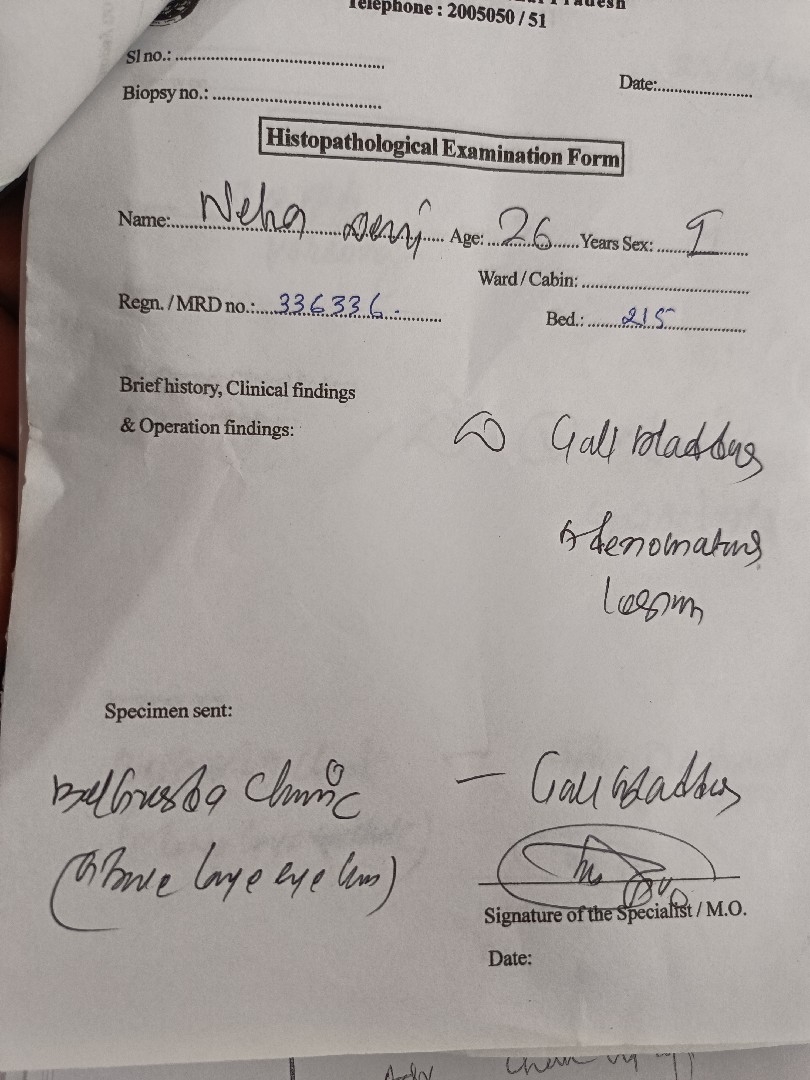 Telephone : 2005050 / 51
Sl no.:
Date:
Biopsy no.:
Histopathological Examination Form
Name: Neha Devi Age: 26 Years Sex:
Ward / Cabin:
Regn. / MRD no.: 336336.
Bed.: 215
Brief history, Clinical findings
& Operation findings:
Gall bladder
Adenomatus
Specimen sent:
Clinic — Gall bladder
(Above eye
Signature of the Specialist / M.O.
Date: